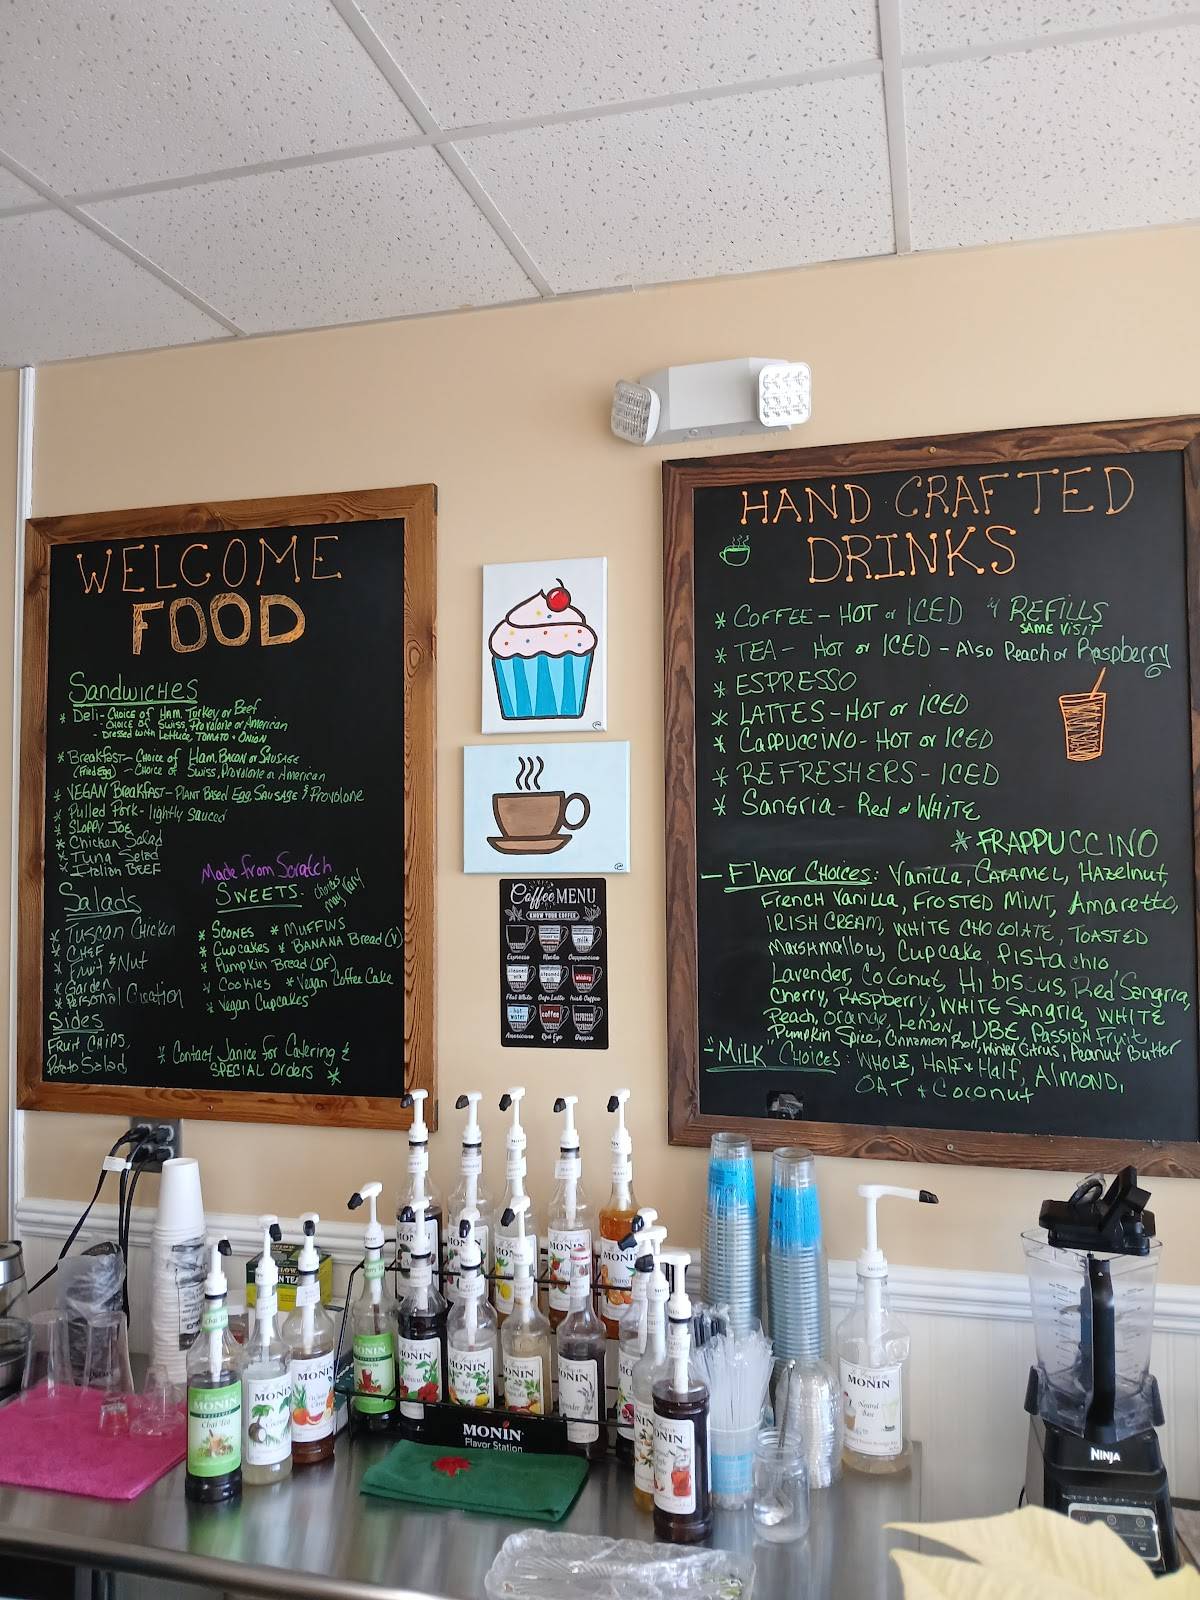 WELCOME
FOOD
Sandwiches
* Deli - CHOICE of HAM, Turkey or Beef
- CHOICE of Swiss, Provolone or American
- Dressed with Lettuce, TOMATO + ONION
* Breakfast - Choice of Ham, Bacon or Sausage
(Fried Egg) - Choice of Swiss, Provolone or American
* VEGAN Breakfast - PLANT Based Egg, SAUSAGE & Provolone
* Pulled Pork - lightly sauced
* SLOPPY JOE
* Chicken Salad
* Tuna Salad
* Italian BEEF
Salads
* Tuscan Chicken
* CHEF
* Fruit & Nut
* Garden
* Personal Creation
Sides
Fruit, CHIPS,
Potato Salad
Made from Scratch
SWEETS
choices may vary
* SCONES * MUFFINS
* Cupcakes * BANANA Bread (V)
* Pumpkin Bread (DF)
* Cookies * Vegan Coffee Cake
* Vegan Cupcakes
* Contact Janice for Catering &
SPECIAL Orders *
Coffee MENU
KNOW YOUR COFFEE
Espresso Mocha Cappuccino
Flat White Cafe Latte Irish Coffee
Americano Red Eye
HAND CRAFTED
DRINKS
* COFFEE - HOT or ICED & REFILLS
SAME VISIT
* TEA - HOT or ICED - Also Peach or Raspberry
* ESPRESSO
* LATTES - HOT or ICED
* CAPPUCCINO - HOT or ICED
* REFRESHERS - ICED
* SANGRIA - Red or WHITE
* FRAPPUCCINO
- Flavor CHOICES: Vanilla, CARAMEL, Hazelnut,
French Vanilla, FROSTED MINT, Amaretto,
IRISH CREAM, WHITE CHOCOLATE, TOASTED
Marshmallow, Cupcake, Pistachio,
Lavender, Coconut, Hibiscus, Red Sangria,
Cherry, Raspberry, WHITE Sangria, WHITE
Peach, Orange, Lemon, UBE, Passion Fruit,
Pumpkin Spice, Cinnamon Roll, Winter Citrus, Peanut Butter
- "MILK" CHOICES: WHOLE, HALF & Half, ALMOND,
OAT + Coconut
MONIN
Chai Tea
MONIN
Coconut
MONIN
Winter Citrus
MONIN
MONIN
MONIN
MONIN
MONIN
MONIN
Flavor Station
MONIN
Neutral
Base
NINJA